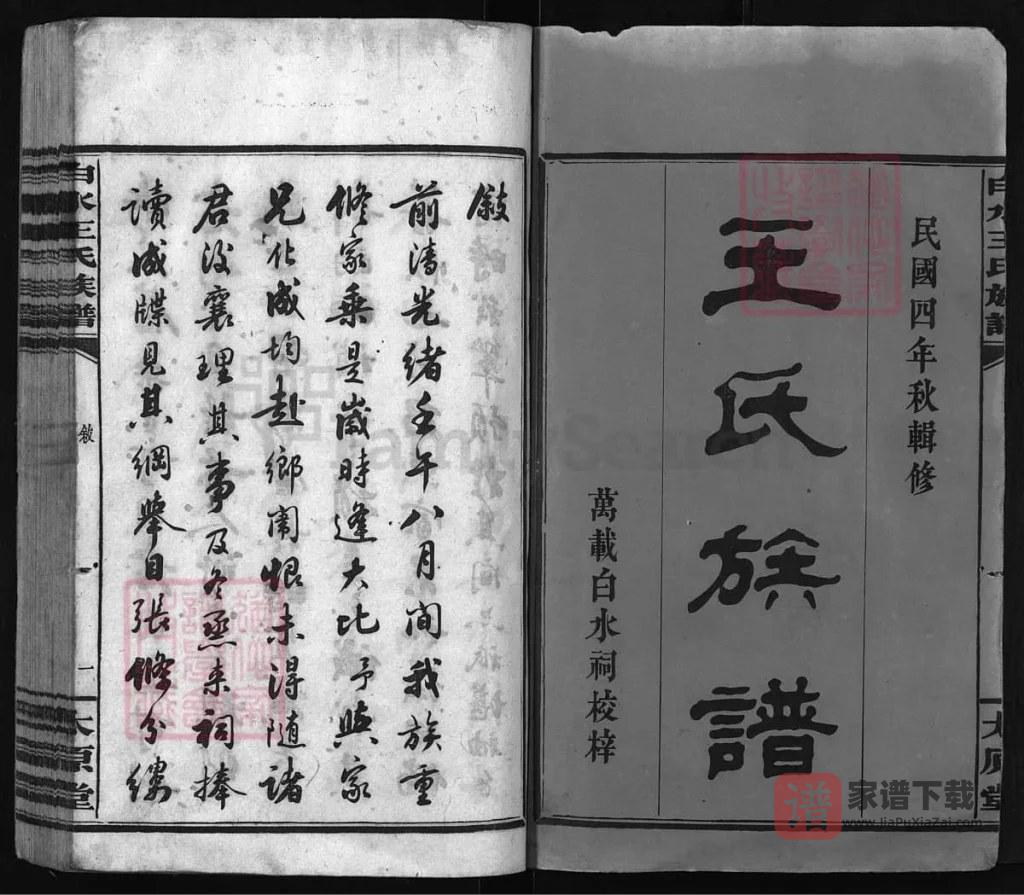 民國四年秋輯修
王氏族譜
萬載白水祠校梓
白水王氏族譜
太原堂
敍
前清光緒壬午八月間我族重
修家乘是歲時逢大比予與家
兄佐成均赴鄉闈恨未得隨諸
君後襄理其事及冬烝來祠捧
讀成牒見其綱舉目張條分縷
白水王氏族譜
敘
一
太原堂
家谱下载
www.JiaPuXiaZai.com
譜
FamilySearch